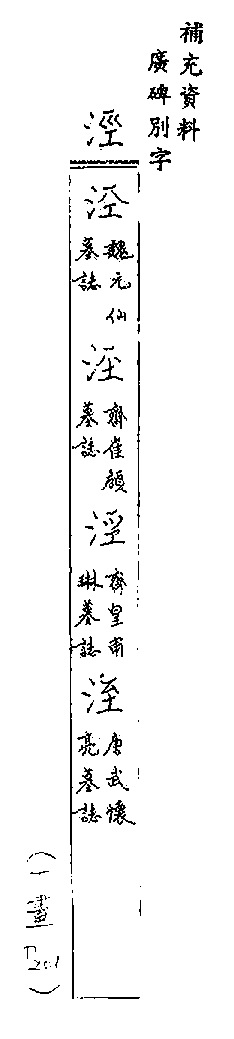 補充資料
廣碑別字
涇
魏元仙
墓誌
齊崔頠
墓誌
齊皇甫
琳墓誌
唐武懷
亮墓誌
(一畫)